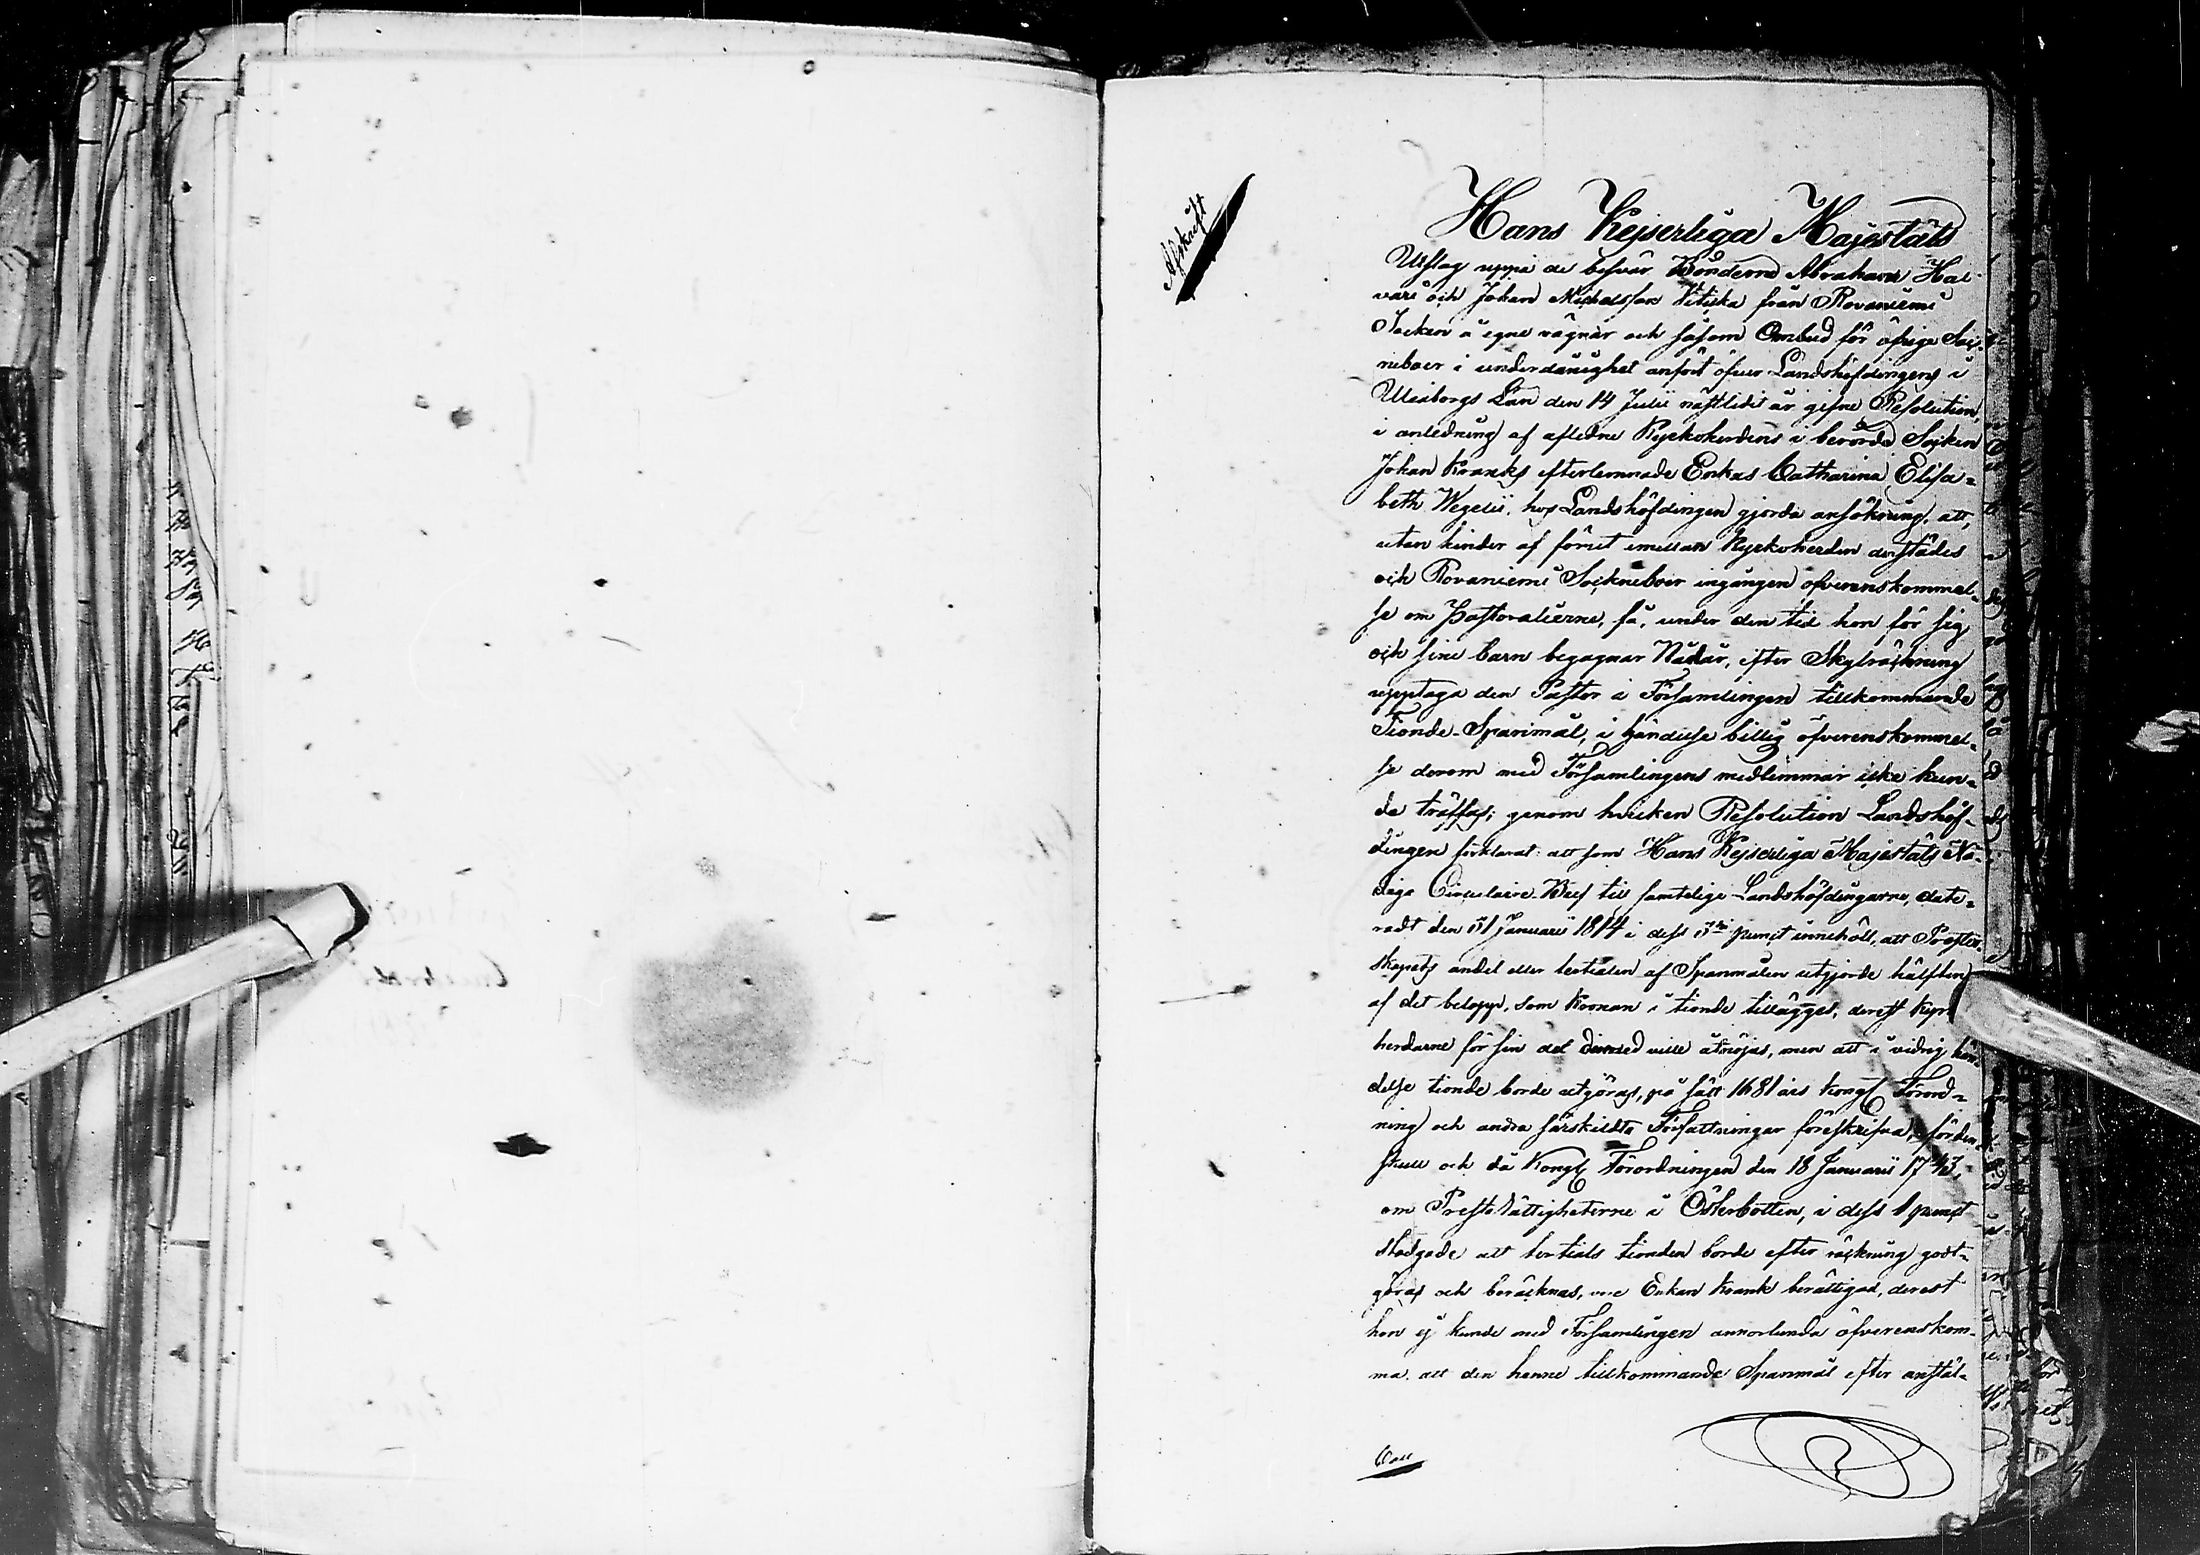 Afskrift
Hans Kejserliga Majestäts
Utslag uppå de besvär Bönderne Abraham Hai-
vari och Johan Michelsson Vitika från Rovaniemi
Socken å egne vägnar och såsom Ombud för öfrige Sock-
neboer i underdånighet anfört öfver Landshöfdingens i
Uleåborgs Län den 14 Julii nästledit år gifne Resolution,
i anledning af afledne Kyrkoherdens i berörde Socken
Johan Kranks efterlemnade Enkas Catharina Elisa-
beth Wegelii, hos Landshöfdingen gjorda ansökning, att,
utan hinder af förut emellan Kyrkoherden derstädes
och Rovaniemi Sockneboer ingången öfverenskommel-
se om Pastoralierne, få, under den tid hon för sig
och sine barn begagnar Nådår, efter Skylräckning
upptaga den Pastor i Församlingen tillkommande
Tionde-Spanmål, i händelse billig öfverenskommel-
se derom med Församlingens medlemmar icke kun-
de träffas; genom hvilken Resolution Landshöf-
dingen förklarat: att som Hans Kejserliga Majestäts Nå-
dige Circulaire Bref till samtelige Landshöfdingarne, date-
radt den 31 Januarii 1814 i dess 3dje punct innehöll, att Prester-
skapets andel eller tertialen af Spanmålen utgjorde hälften
af det belopp, som Kronan i tionde tillägges, derest Kyrko
herdarne för sin del dermed ville åtnöjas, men att i vidrig hän-
delse tionde borde utgöras, på sätt 1681 års Kongl Förord-
ning och andra särskildta Författningar föreskrifva, förden-
skull och då Kongl Förordningen den 18 Januarii 1743,
om Preste Rättigheterne i Österbotten, i dess 1 punct
stadgade att tertials tionden borde efter räckning godt-
göras och beräcknas, vore Enkan Krank berättigad, derest
hon ej kunde med Församlingen annorlunda öfverenskom-
ma, att den henne tillkommande Spanmål efter anstäl-